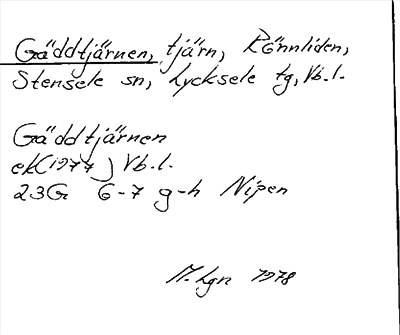 Gäddtjärnen, tjärn, Rönnliden,
Stensele sn, Lycksele tg, Vb.l.
Gäddtjärnen
ek(1977) Vb.l.
23G 6-7 g-h Nipen
M. Lgn 1978